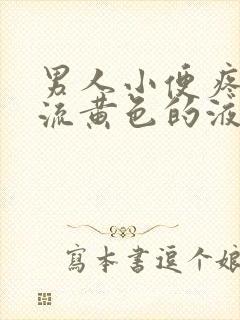 男人小便疼
流黄色的液
寫本書逗个娘